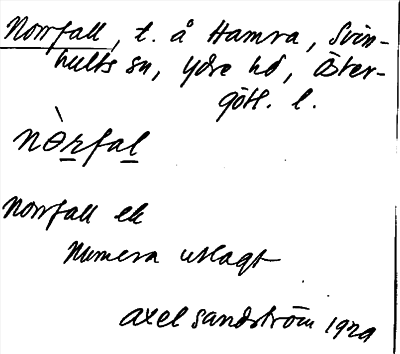 Norrfall, t. å Hamra, Svin-
hults sn, Ydre hd, Öster-
götl. l.
nὸrfal
Norrfall ek
Numera utlagt
Axel Sandström 1929